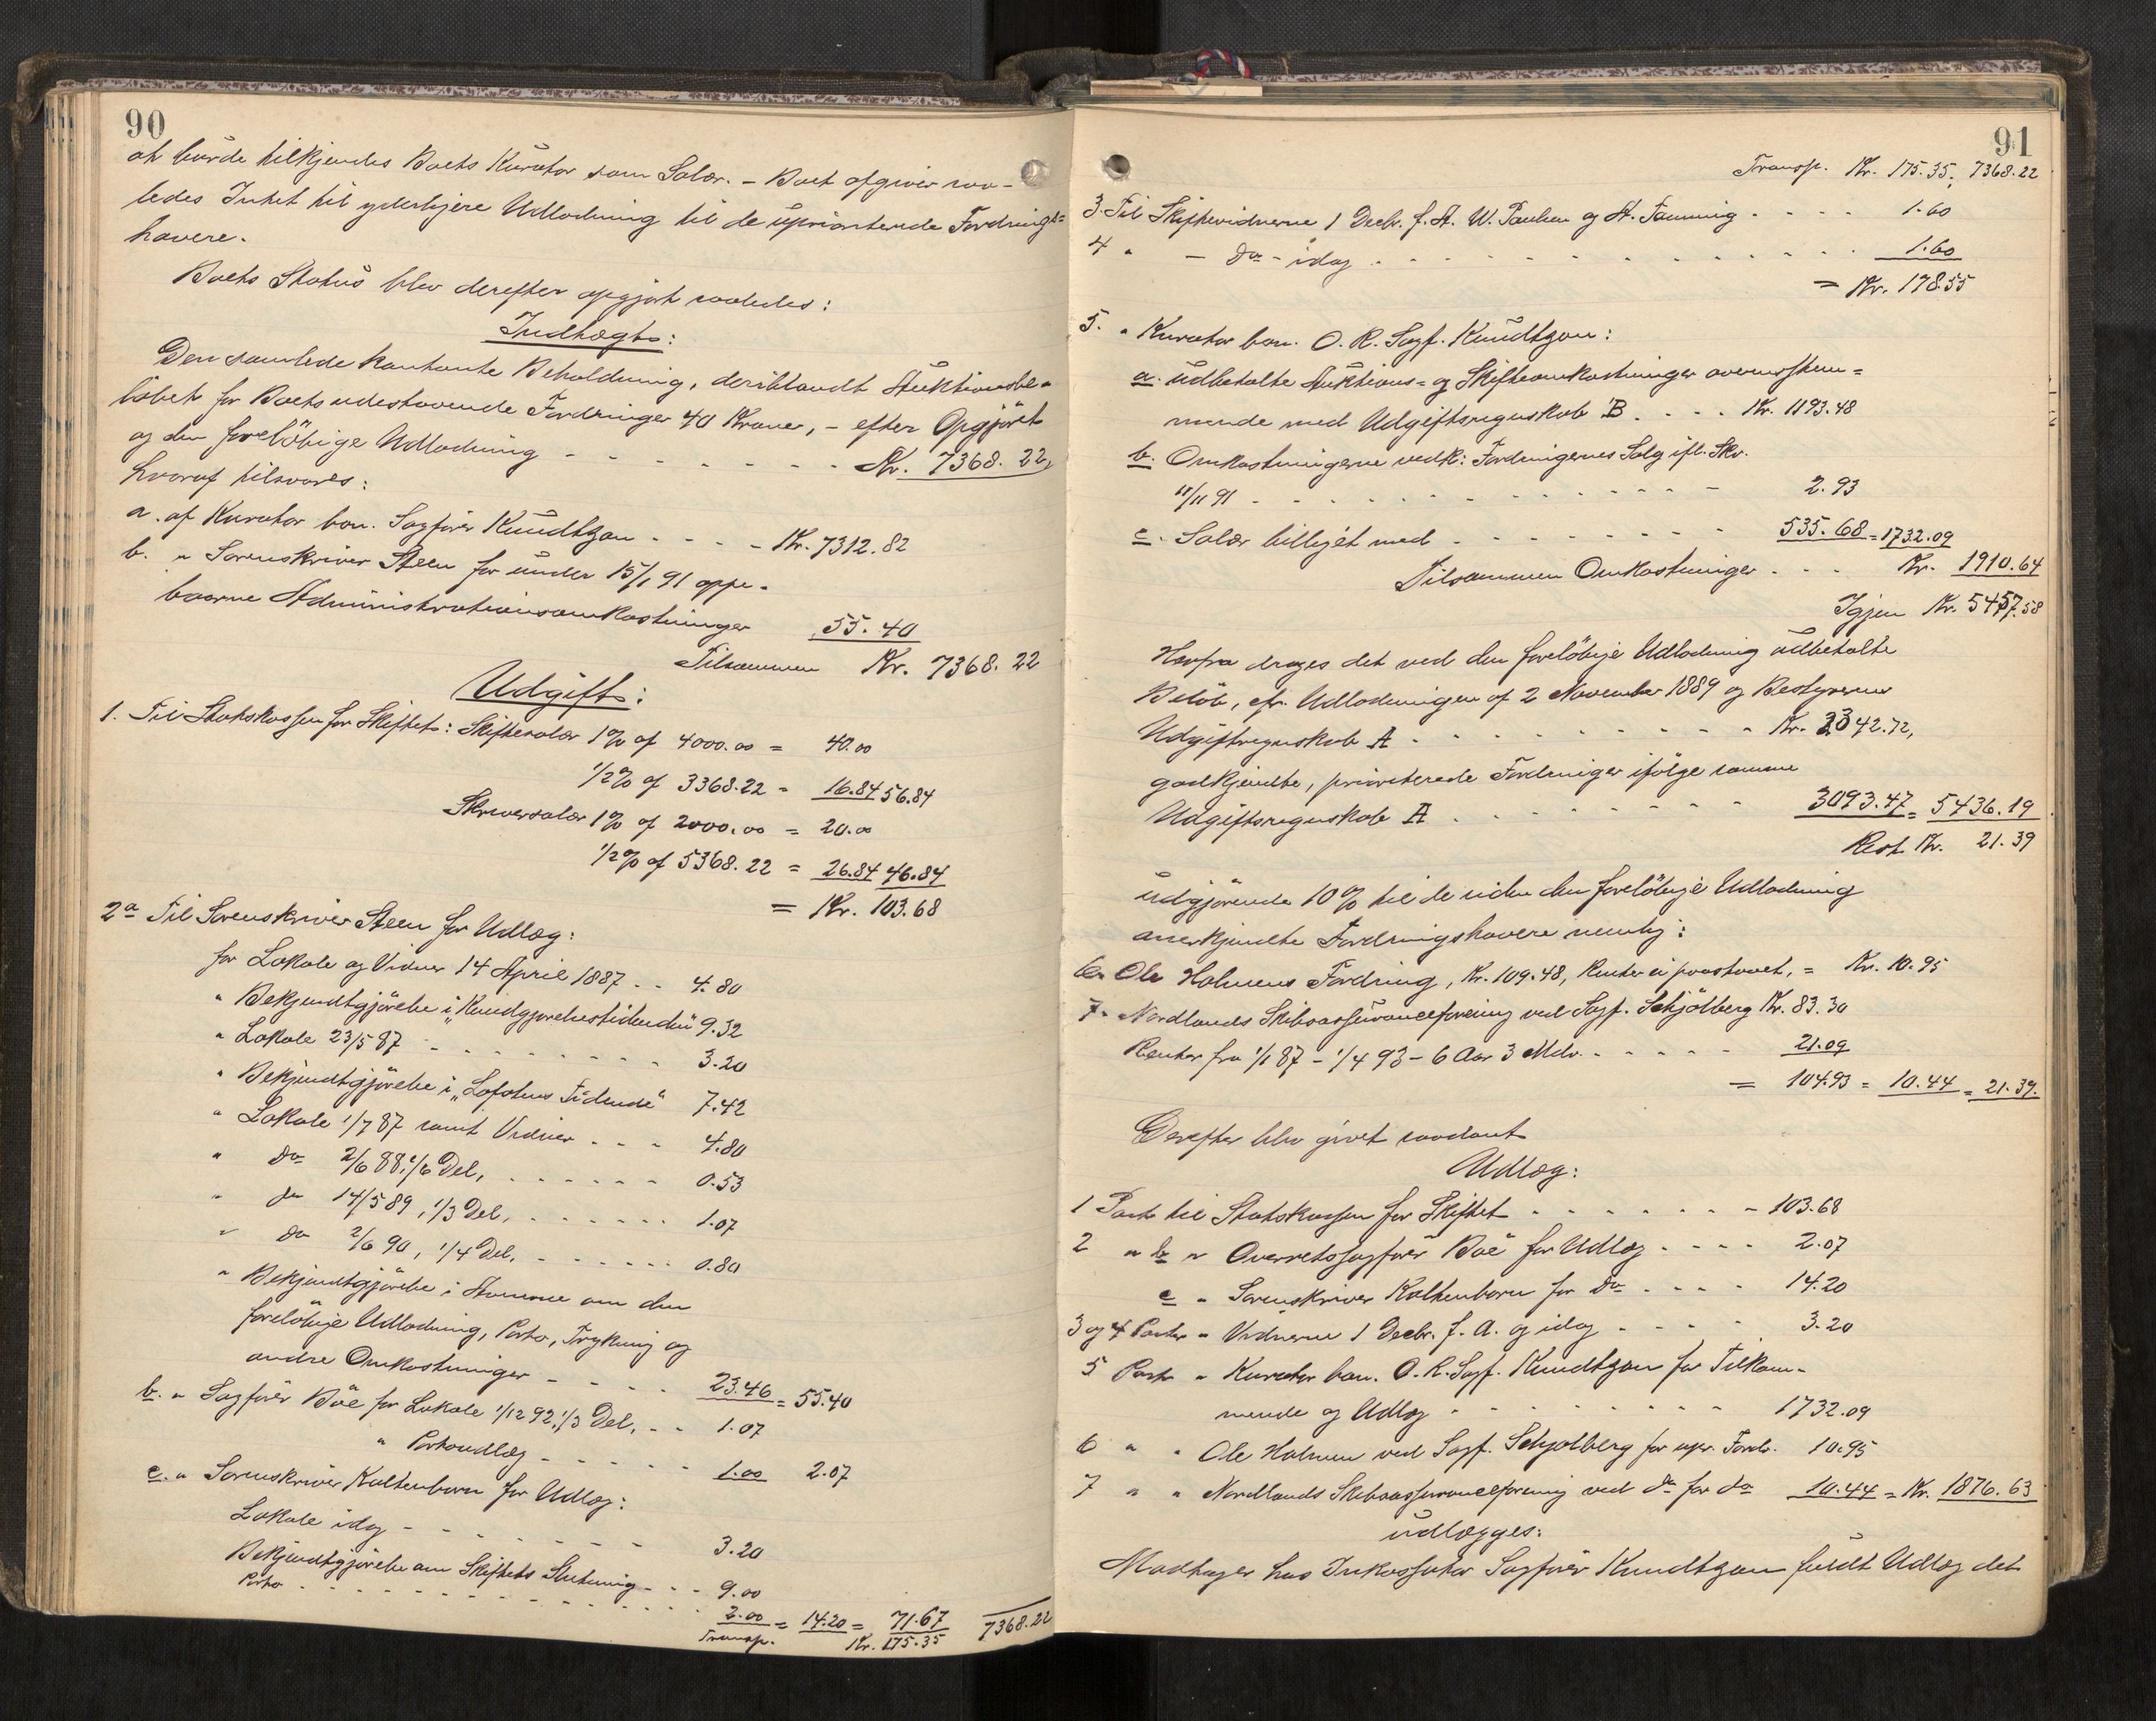 90
at burde tilkjendes Boets Kurator som Salær. – Boet afgiver saa-
ledes Intet til yderligere Udlodning til de uprioriterede Fordrings=
havere.
Boets Status blev derefter opgjort saaledes:
Indtægt:
Den samlede kontante Beholdning, deriblandt Auktionsbe-
løbet for Boets udestaaende Fordringer 40 Kroner, – efter Opgjøret
og den foreløbige Udlodning - - - - - - - Kr. 7368. 22,
hvoraf tilsvares:
a. af Kurator bon. Sagfører Knudtzon - - - - Kr. 7312. 82
b. " Sorenskriver Steen for under 15/1 91 oppe-
baarne Administrationsomkostninger 55. 40
Tilsammen Kr. 7368. 22
Udgift:
1. Til Statskassen for Skiftet: Skiftesalær 1% af 4000.00 = 40.00
1/2% af 3368.22 = 16.84 56.84
Skriversalær 1% af 2000.00 = 20.00
1/2% af 5368.22 = 26.84 46.84
= Kr. 103.68
2a Til Sorenskriver Steen for Udlæg:
for Lokale og Vidner 14 April 1887 - - 4.80
" Bekjendtgjørelse i "Kundgjørelsestidende" 9.32
" Lokale 23/5 87 - - - - - - - - 3.20
" Bekjendtgjørelse i "Lofotens Tidende" 7.42
" Lokale 1/7 87 samt Vidner - - - 4.80
" do 2/6 88, 1/6 Del, - - - - - - 0.53
" do 14/5 89, 1/3 Del, - - - - - - 1.07
" do 2/6 90, 1/4 Del, - - - - - - 0.80
" Bekjendtgjørelse i Aviserne om den
foreløbige Udlodning, Porto, Trykning og
andre Omkostninger - - - - 23.46 = 55.40
b. " Sagfører Böe for Lokale 1/12 92, 1/3 Del, - - 1.07
" Portoudlæg - - - - - 1.00 2.07
c. " Sorenskriver Kaltenborn for Udlæg:
Lokale idag - - - - - - - - 3.20
Bekjendtgjørelse om Skiftets Slutning - - - 9.00
Porto - - - - - - - - - - - 2.00 = 14.20 = 71.67 7368.22
Transp. Kr. 175.35
91
Transp. Kr. 175.35, 7368.22
3. Til Skiftevidnerne 1 Decbr. f. A. W. Paulsen og A. Fanning - - - - 1.60
4 " – do – idag - - - - - - - - - - - - 1.60
= Kr. 178.55
5. " Kurator bon. O. R. Sagf. Knudtzon:
a. udbetalte Auktions= og Skifteomkostninger overensstem=
mende med Udgiftsregnskab B - - - - Kr. 1193.48
b. Omkostningerne vedk: Fordringernes Salg ifl. Skr.
11/11 91 - - - - - - - - - - - - 2.93
c. Salær billiget med - - - - - - - 535.68 = 1732.09
Tilsammen Omkostninger - - - Kr. 1910.64
Igjen Kr. 5457.58
Herfra drages det ved den foreløbige Udlodning udbetalte
Beløb, cfr. Udlodningen af 2 November 1889 og Bestyrerens
Udgiftregnskab A - - - - - - - - - Kr. 2342.72,
godkjendte, prioriterede Fordringer ifølge samme
Udgiftsregnskab A - - - - - - - 3093.47 = 5436.19
Rest Kr. 21.39
udgjørende 10% til de siden den foreløbige Udlodning
anerkjendte Fordringshavere nemlig:
6. Ole Holmens Fordring, Kr. 109.48, Renter ei paastaaet, = Kr. 10.95
7. Nordlands Skibsassuranceforening ved Sagf. Schjølberg Kr. 83.30
Renter fra 1/1 87 – 1/4 93 – 6 Aar 3 Mdr. - - - - - 21.09
= 104.93 = 10.44 = 21.39.
Derefter blev givet saadant
Udlæg:
1 Post til Statskassen for Skiftet - - - - - - - 103.68
2 " b " Overretssagfører Böe for Udlæg - - - - 2.07
c " Sorenskriver Kaltenborn for do - - - - 14.20
3 og 4 Poster " Vidnerne 1 Decbr. f. A. og idag - - - - 3.20
5 Post " Kurator bon. O. R. Sagf. Knudtzon for Tilkom-
mende og Udlæg - - - - - - - - - 1732.09
6 " " Ole Holmen ved Sagf. Schjølberg for upr. Fordr. 10.95
7 " " Nordlands Skibsassuranceforening ved do for do 10.44 = Kr. 1876.63
udlægges:
Modtager hos Inkassator Sagfører Knudtzon fuldt Udlæg det